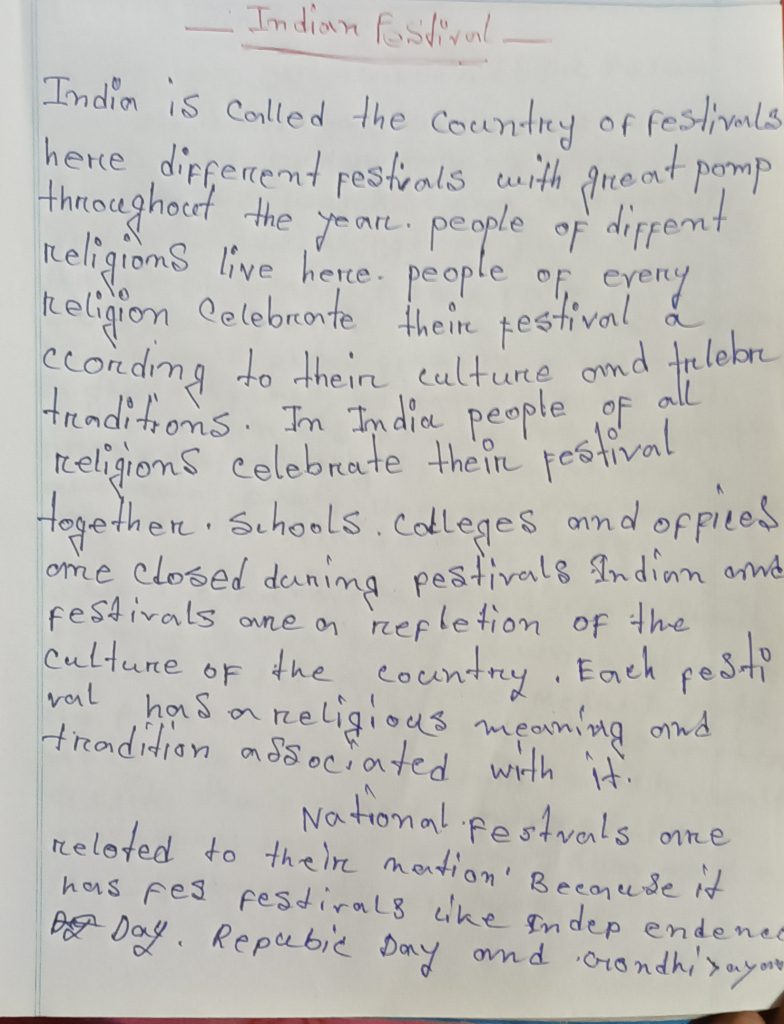 Indian Festival
India is called the country of festivals
here different festivals with great pomp
throughout the year. people of diffent
religions live here. people of every
religion celebrate their festival a
ccording to their culture and
traditions. In India people of all
religions celebrate their festival
together. Schools. Colleges and offices
are closed during festivals Indian and
festivals are a refletion of the
culture of the country. Each festi
val has a religious meaning and
tradition associated with it.
National festvals are
related to their nation' Because it
has fes festivals like Indep endence
Day. Repubic Day and Gandhi